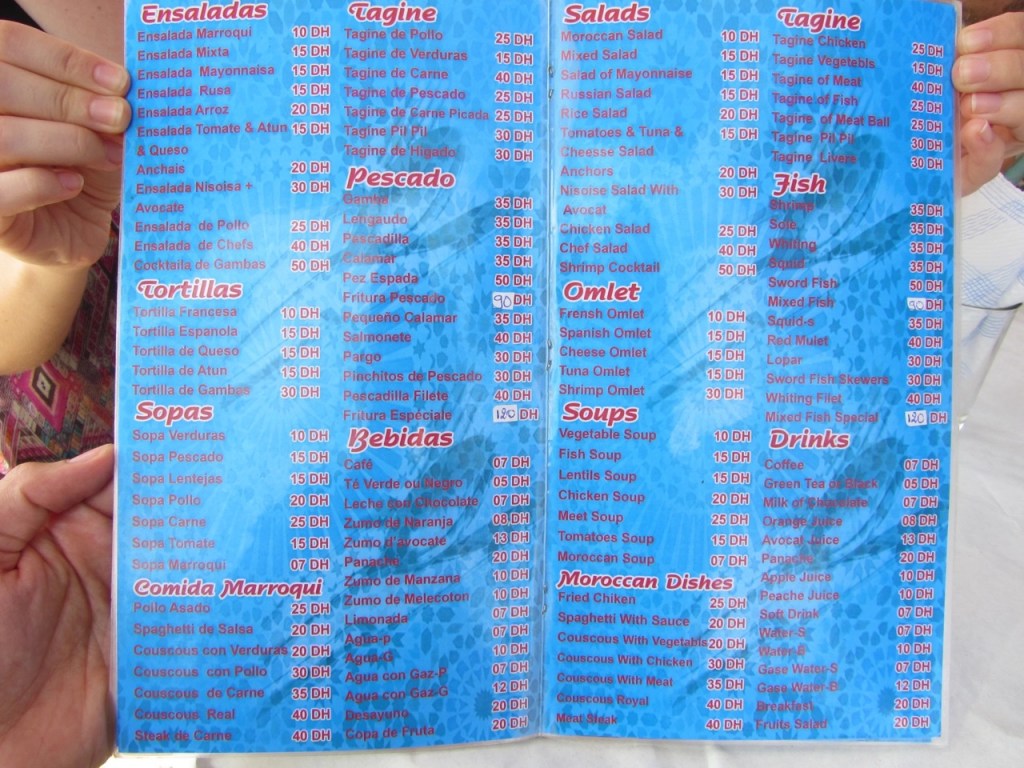 Ensaladas
Ensalada Marroqui 10 DH
Ensalada Mixta 15 DH
Ensalada Mayonnaisa 15 DH
Ensalada Rusa 15 DH
Ensalada Arroz 20 DH
Ensalada Tomate & Atun 15 DH
& Queso
Anchais 20 DH
Ensalada Nisoisa + 30 DH
Avocate
Ensalada de Pollo 25 DH
Ensalada de Chefs 40 DH
Cocktaila de Gambas 50 DH
Tortillas
Tortilla Francesa 10 DH
Tortilla Espanola 15 DH
Tortilla de Queso 15 DH
Tortilla de Atun 15 DH
Tortilla de Gambas 30 DH
Sopas
Sopa Verduras 10 DH
Sopa Pescado 15 DH
Sopa Lentejas 15 DH
Sopa Pollo 20 DH
Sopa Carne 25 DH
Sopa Tomate 15 DH
Sopa Marroqui 07 DH
Comida Marroqui
Pollo Asado 25 DH
Spaghetti de Salsa 20 DH
Couscous con Verduras 20 DH
Couscous con Pollo 30 DH
Couscous de Carne 35 DH
Couscous Real 40 DH
Steak de Carne 40 DH
Tagine
Tagine de Pollo 25 DH
Tagine de Verduras 15 DH
Tagine de Carne 40 DH
Tagine de Pescado 25 DH
Tagine de Carne Picada 25 DH
Tagine Pil Pil 30 DH
Tagine de Higado 30 DH
Pescado
Gamba 35 DH
Lengaudo 35 DH
Pascadilla 35 DH
Calamar 35 DH
Pez Espada 50 DH
Fritura Pescado 90 DH
Pequeño Calamar 35 DH
Salmonete 40 DH
Pargo 30 DH
Pinchitos de Pescado 30 DH
Pescadilla Filete 40 DH
Fritura Espéciale 120 DH
Bebidas
Café 07 DH
Té Verde ou Negro 05 DH
Leche con Chocolate 07 DH
Zumo de Naranja 08 DH
Zumo d'avocate 13 DH
Panache 20 DH
Zumo de Manzana 10 DH
Zumo de Melecoton 10 DH
Limonada 07 DH
Agua-p 07 DH
Agua-G 10 DH
Agua con Gaz-P 07 DH
Agua con Gaz-G 12 DH
Desayuno 20 DH
Copa de Fruta 20 DH
Salads
Moroccan Salad 10 DH
Mixed Salad 15 DH
Salad of Mayonnaise 15 DH
Russian Salad 15 DH
Rice Salad 20 DH
Tomatoes & Tuna & 15 DH
Cheesse Salad
Anchors 20 DH
Nisoise Salad With 30 DH
Avocat
Chicken Salad 25 DH
Chef Salad 40 DH
Shrimp Cocktail 50 DH
Omlet
Frensh Omlet 10 DH
Spanish Omlet 15 DH
Cheese Omlet 15 DH
Tuna Omlet 15 DH
Shrimp Omlet 30 DH
Soups
Vegetable Soup 10 DH
Fish Soup 15 DH
Lentils Soup 15 DH
Chicken Soup 20 DH
Meet Soup 25 DH
Tomatoes Soup 15 DH
Moroccan Soup 07 DH
Moroccan Dishes
Fried Chiken 25 DH
Spaghetti With Sauce 20 DH
Couscous With Vegetabls 20 DH
Couscous With Chicken 30 DH
Couscous With Meat 35 DH
Couscous Royal 40 DH
Meat Steak 40 DH
Tagine
Tagine Chicken 25 DH
Tagine Vegetebls 15 DH
Tagine of Meat 40 DH
Tagine of Fish 25 DH
Tagine of Meat Ball 25 DH
Tagine Pil Pil 30 DH
Tagine Livers 30 DH
Fish
Shrimp 35 DH
Sole 35 DH
Whiting 35 DH
Squid 35 DH
Sword Fish 50 DH
Mixed Fish 90 DH
Squid-s 35 DH
Red Mulet 40 DH
Lopar 30 DH
Sword Fish Skewers 30 DH
Whiting Filet 40 DH
Mixed Fish Special 120 DH
Drinks
Coffee 07 DH
Green Tea of Black 05 DH
Milk of Chocolate 07 DH
Orange Juice 08 DH
Avocal Juice 13 DH
Panache 20 DH
Apple Juice 10 DH
Peache Juice 10 DH
Soft Drink 07 DH
Water-S 07 DH
Water-B 10 DH
Gase Water-S 07 DH
Gase Water-B 12 DH
Breakfast 20 DH
Fruits Salad 20 DH